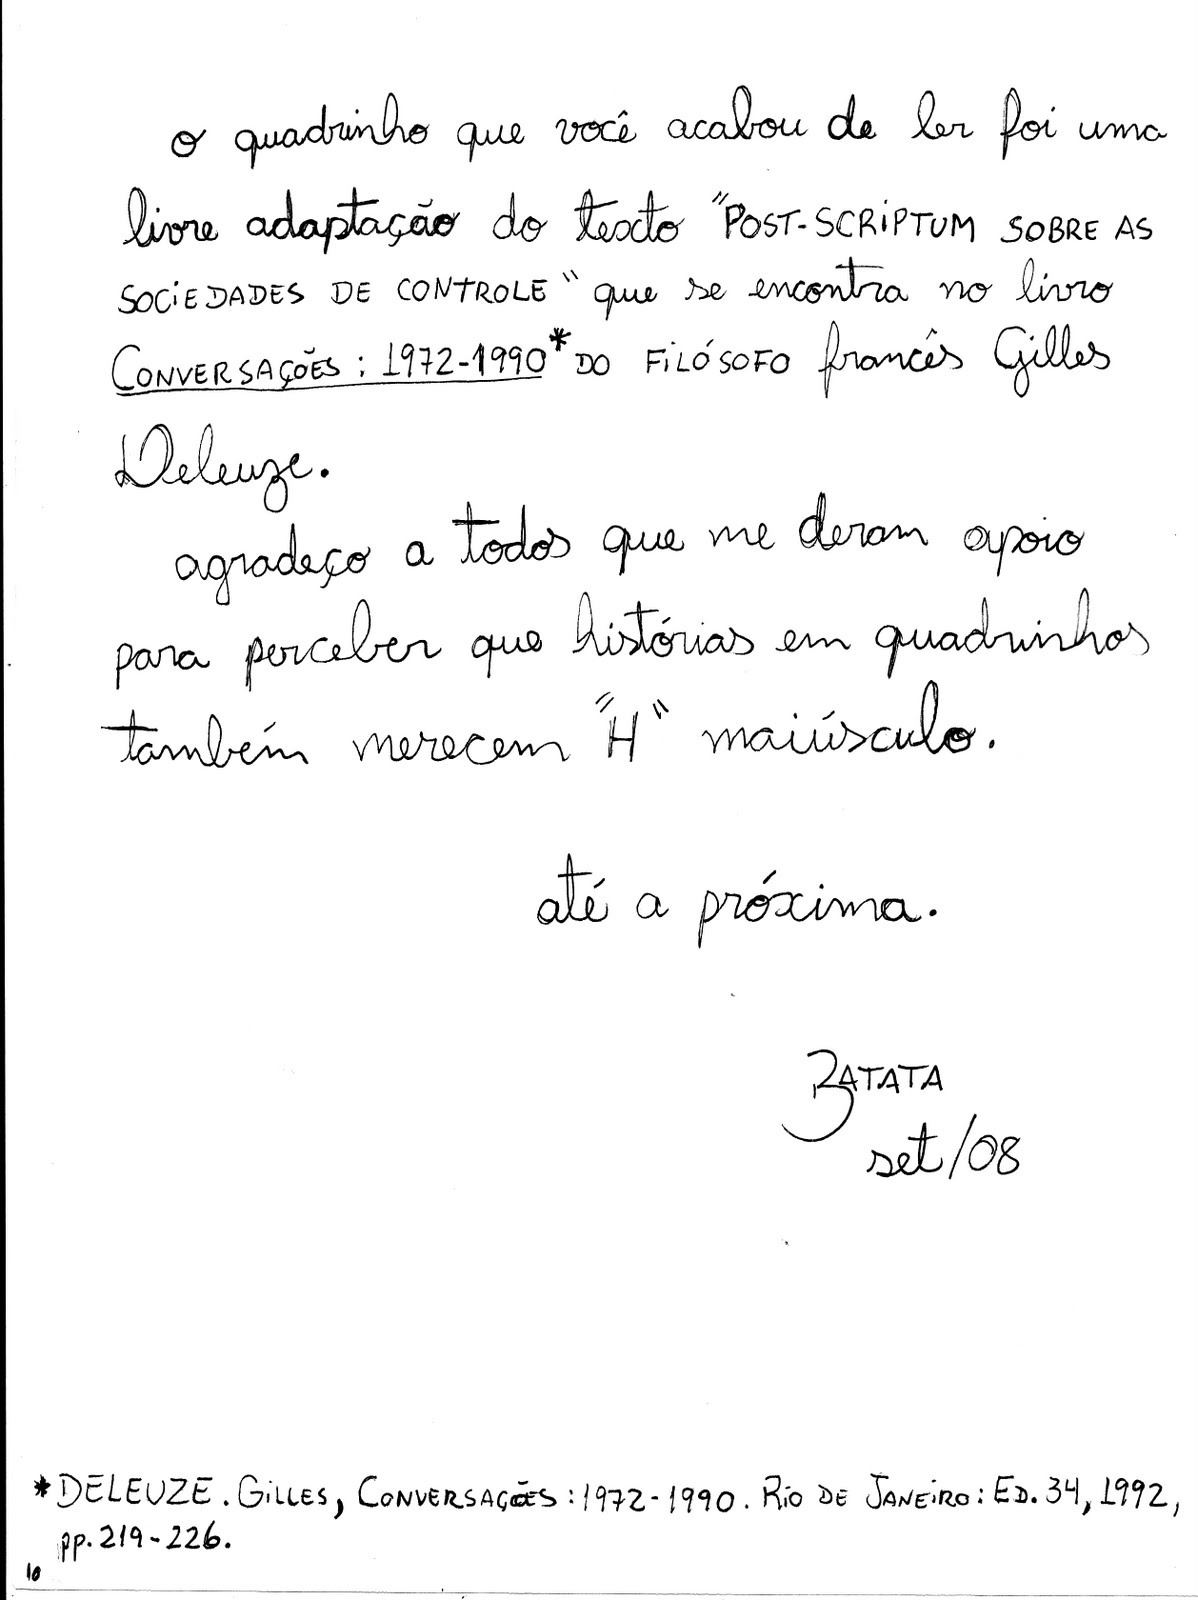 o quadrinho que você acabou de ler foi uma
livre adaptação do texto "POST-SCRIPTUM SOBRE AS
SOCIEDADES DE CONTROLE" que se encontra no livro
CONVERSAÇÕES: 1972-1990* DO FILÓSOFO francês Gilles
Deleuze.
agradeço a todos que me deram apoio
para perceber que histórias em quadrinhos
também merecem "H" maiúsculo.
até a próxima.
BATATA
set/08
*DELEUZE. GILLES, CONVERSAÇÕES: 1972-1990. RIO DE JANEIRO: ED. 34, 1992,
pp. 219-226.
10